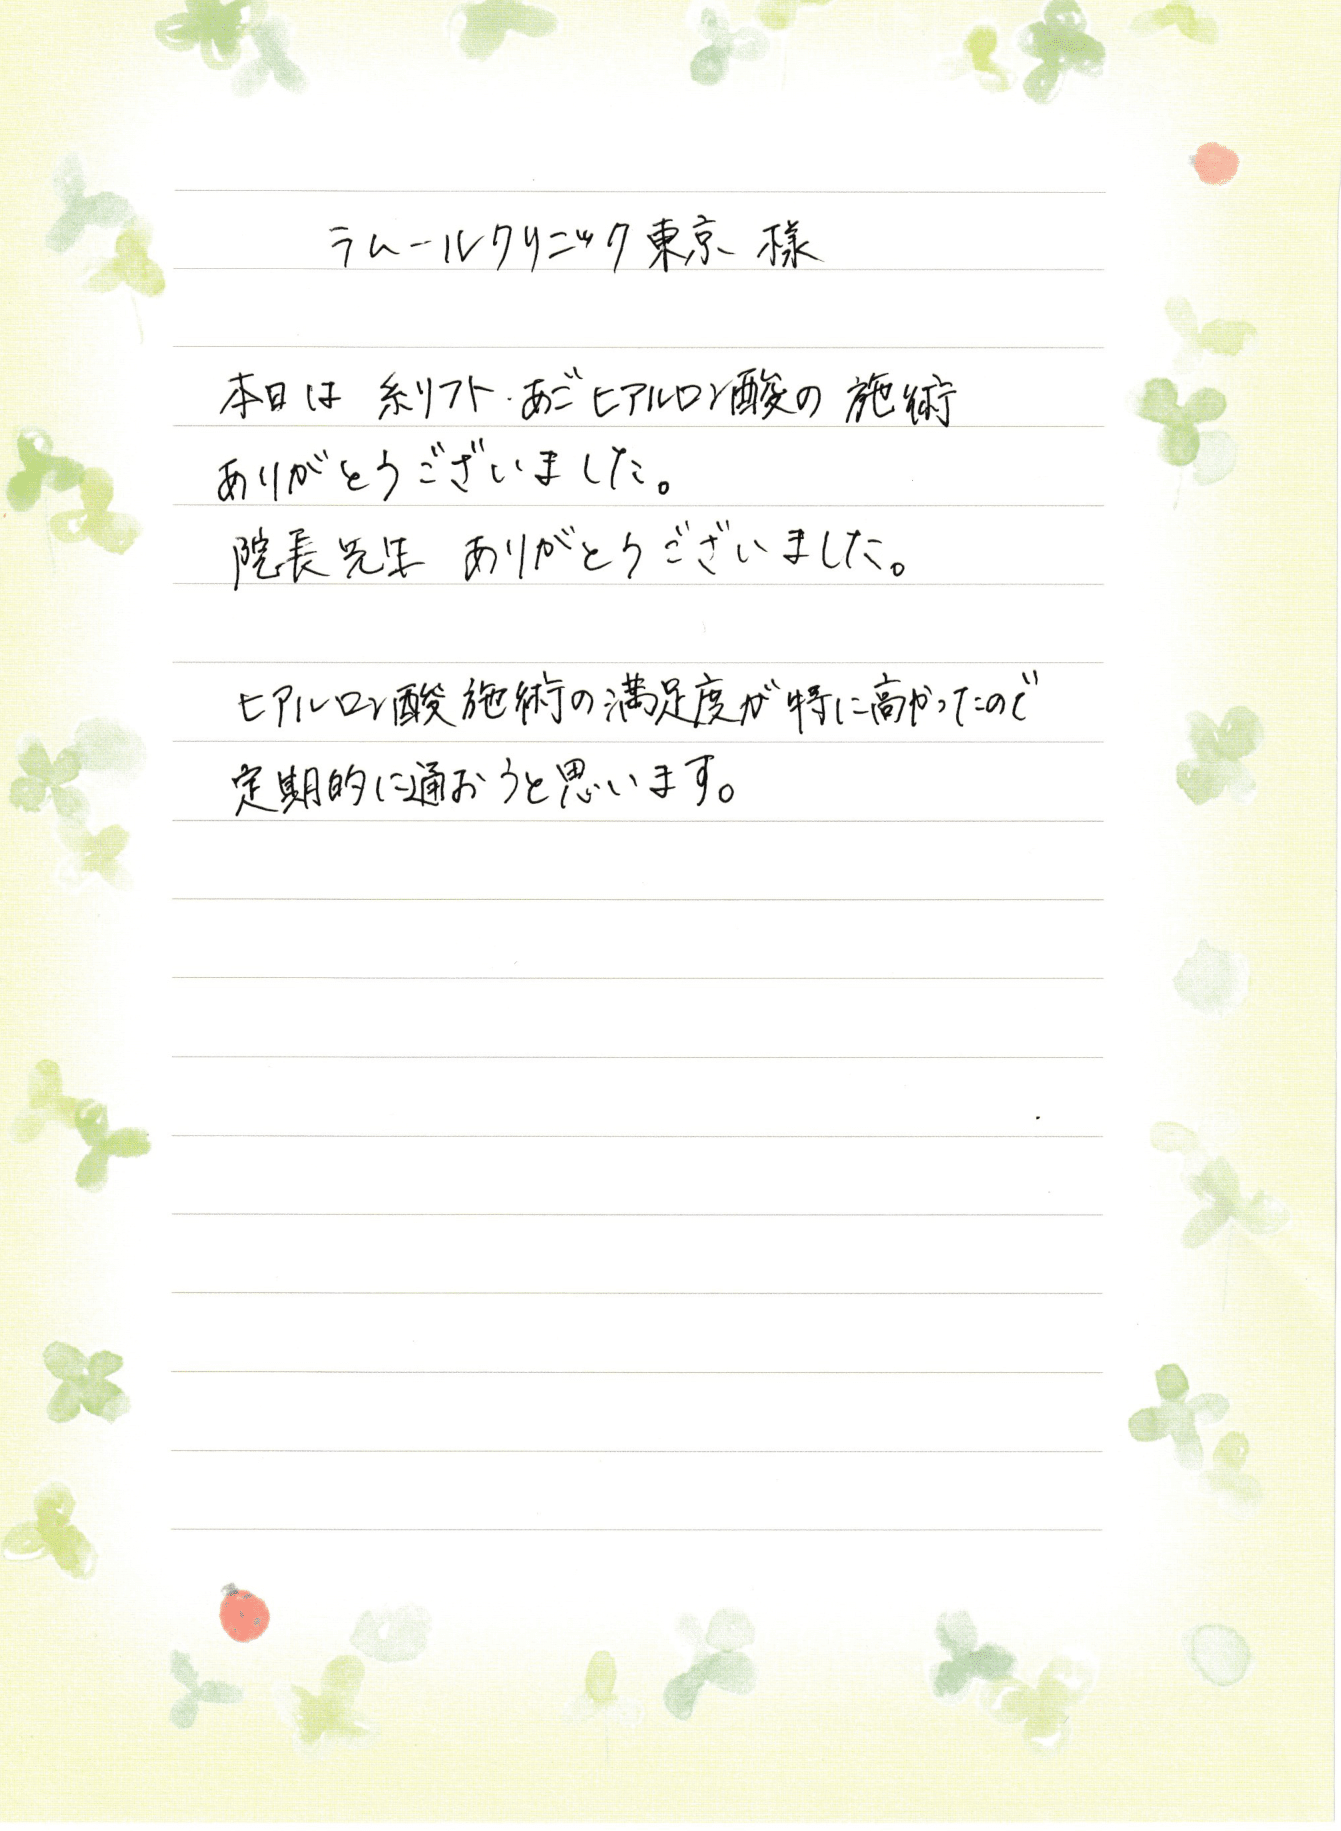 ラムールクリニック東京 様
本日は 糸リフト・あごヒアルロン酸の 施術
ありがとうございました。
院長先生 ありがとうございました。
ヒアルロン酸施術の満足度が特に高かったので
定期的に通おうと思います。